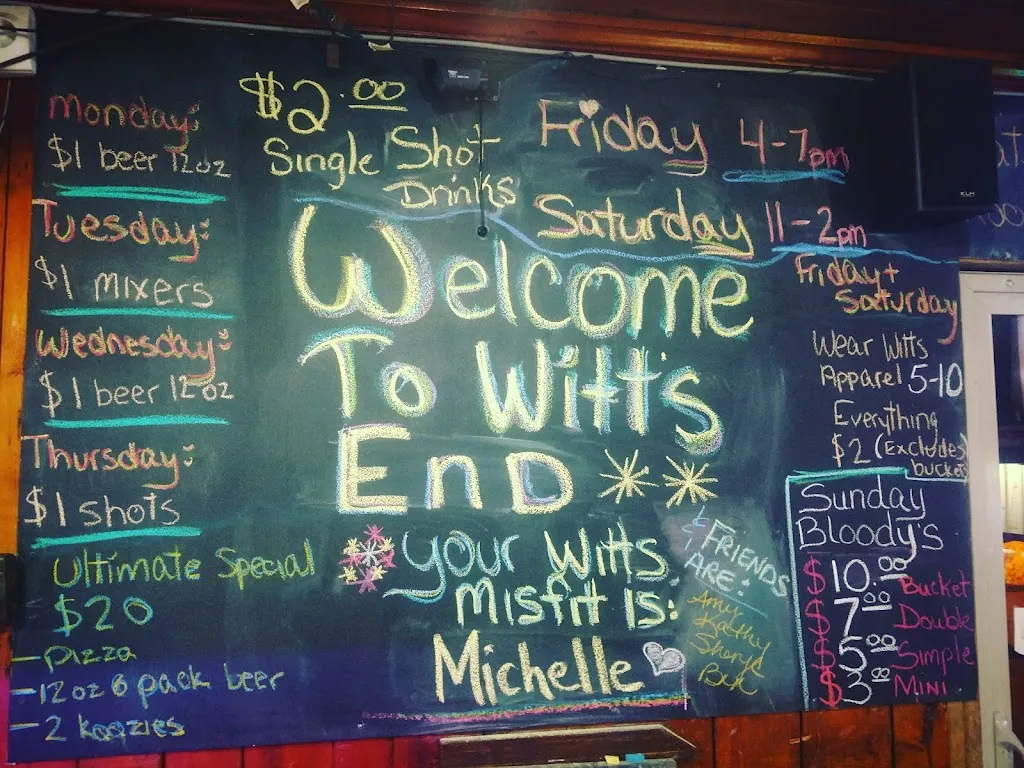 Monday:
$1 beer 12oz
Tuesday:
$1 mixers
Wednesday:
$1 beer 12oz
Thursday:
$1 shots
Ultimate Special
$20
- Pizza
- 12oz 6 pack beer
- 2 koozies
$2.00
Single Shot
Drinks
Friday 4-7pm
Saturday 11-2pm
Welcome
To Witt's
End
Your Witts
Misfit Is:
Michelle
& Friends
Are:
Amy
Kathy
Sheryl
Friday +
Saturday
Wear Witts
Apparel 5-10
Everything
$2 (Excludes
buckets
Sunday
Bloody's
$10.00 Bucket
$7.00 Double
$5.00 Simple
$3.00 Mini
KLH